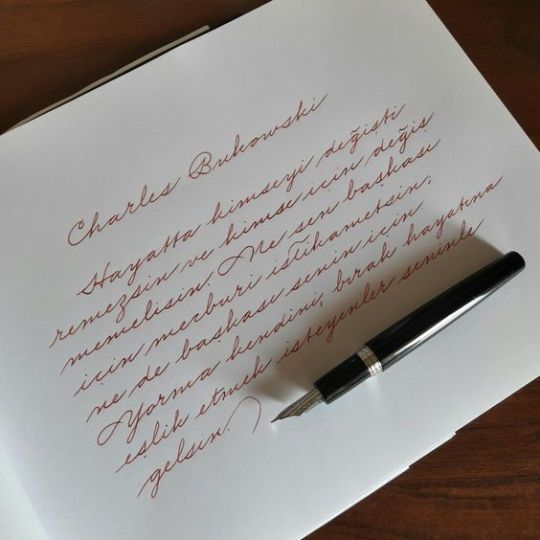 Charles Bukowski
Hayatta kimseyi değişti
remezsin ve kimse için değiş
memelisin. Ne sen başkası
için mecburi istikametsin;
ne de başkası senin için.
Yorma kendini, bırak hayatına
eşlik etmek isteyenler seninle
gelsin.